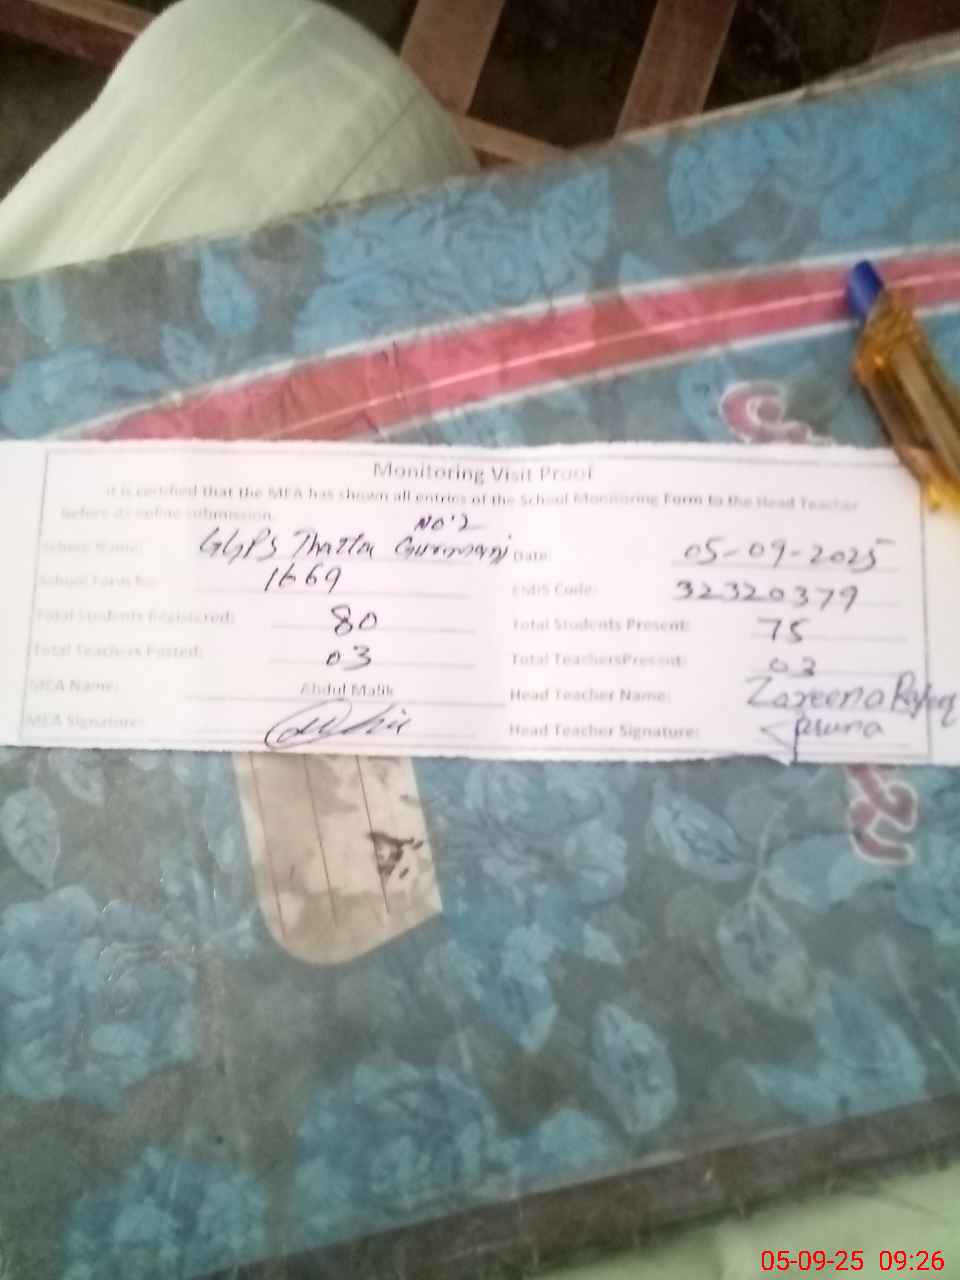 Monitoring Visit Proof
It is certified that the MEA has shown all entries of the School Monitoring Form to the Head Teacher
before its online submission.
School Name: GGPS Thatta Gurmani No.2 Date: 05-09-2025
School Form No: 1669 EMIS Code: 32320379
Total Students Registered: 80 Total Students Present: 75
Total Teachers Posted: 03 Total TeachersPresent: 03
MEA Name: Abdul Malik Head Teacher Name: Zareena
MEA Signature: Head Teacher Signature:
05-09-25 09:26